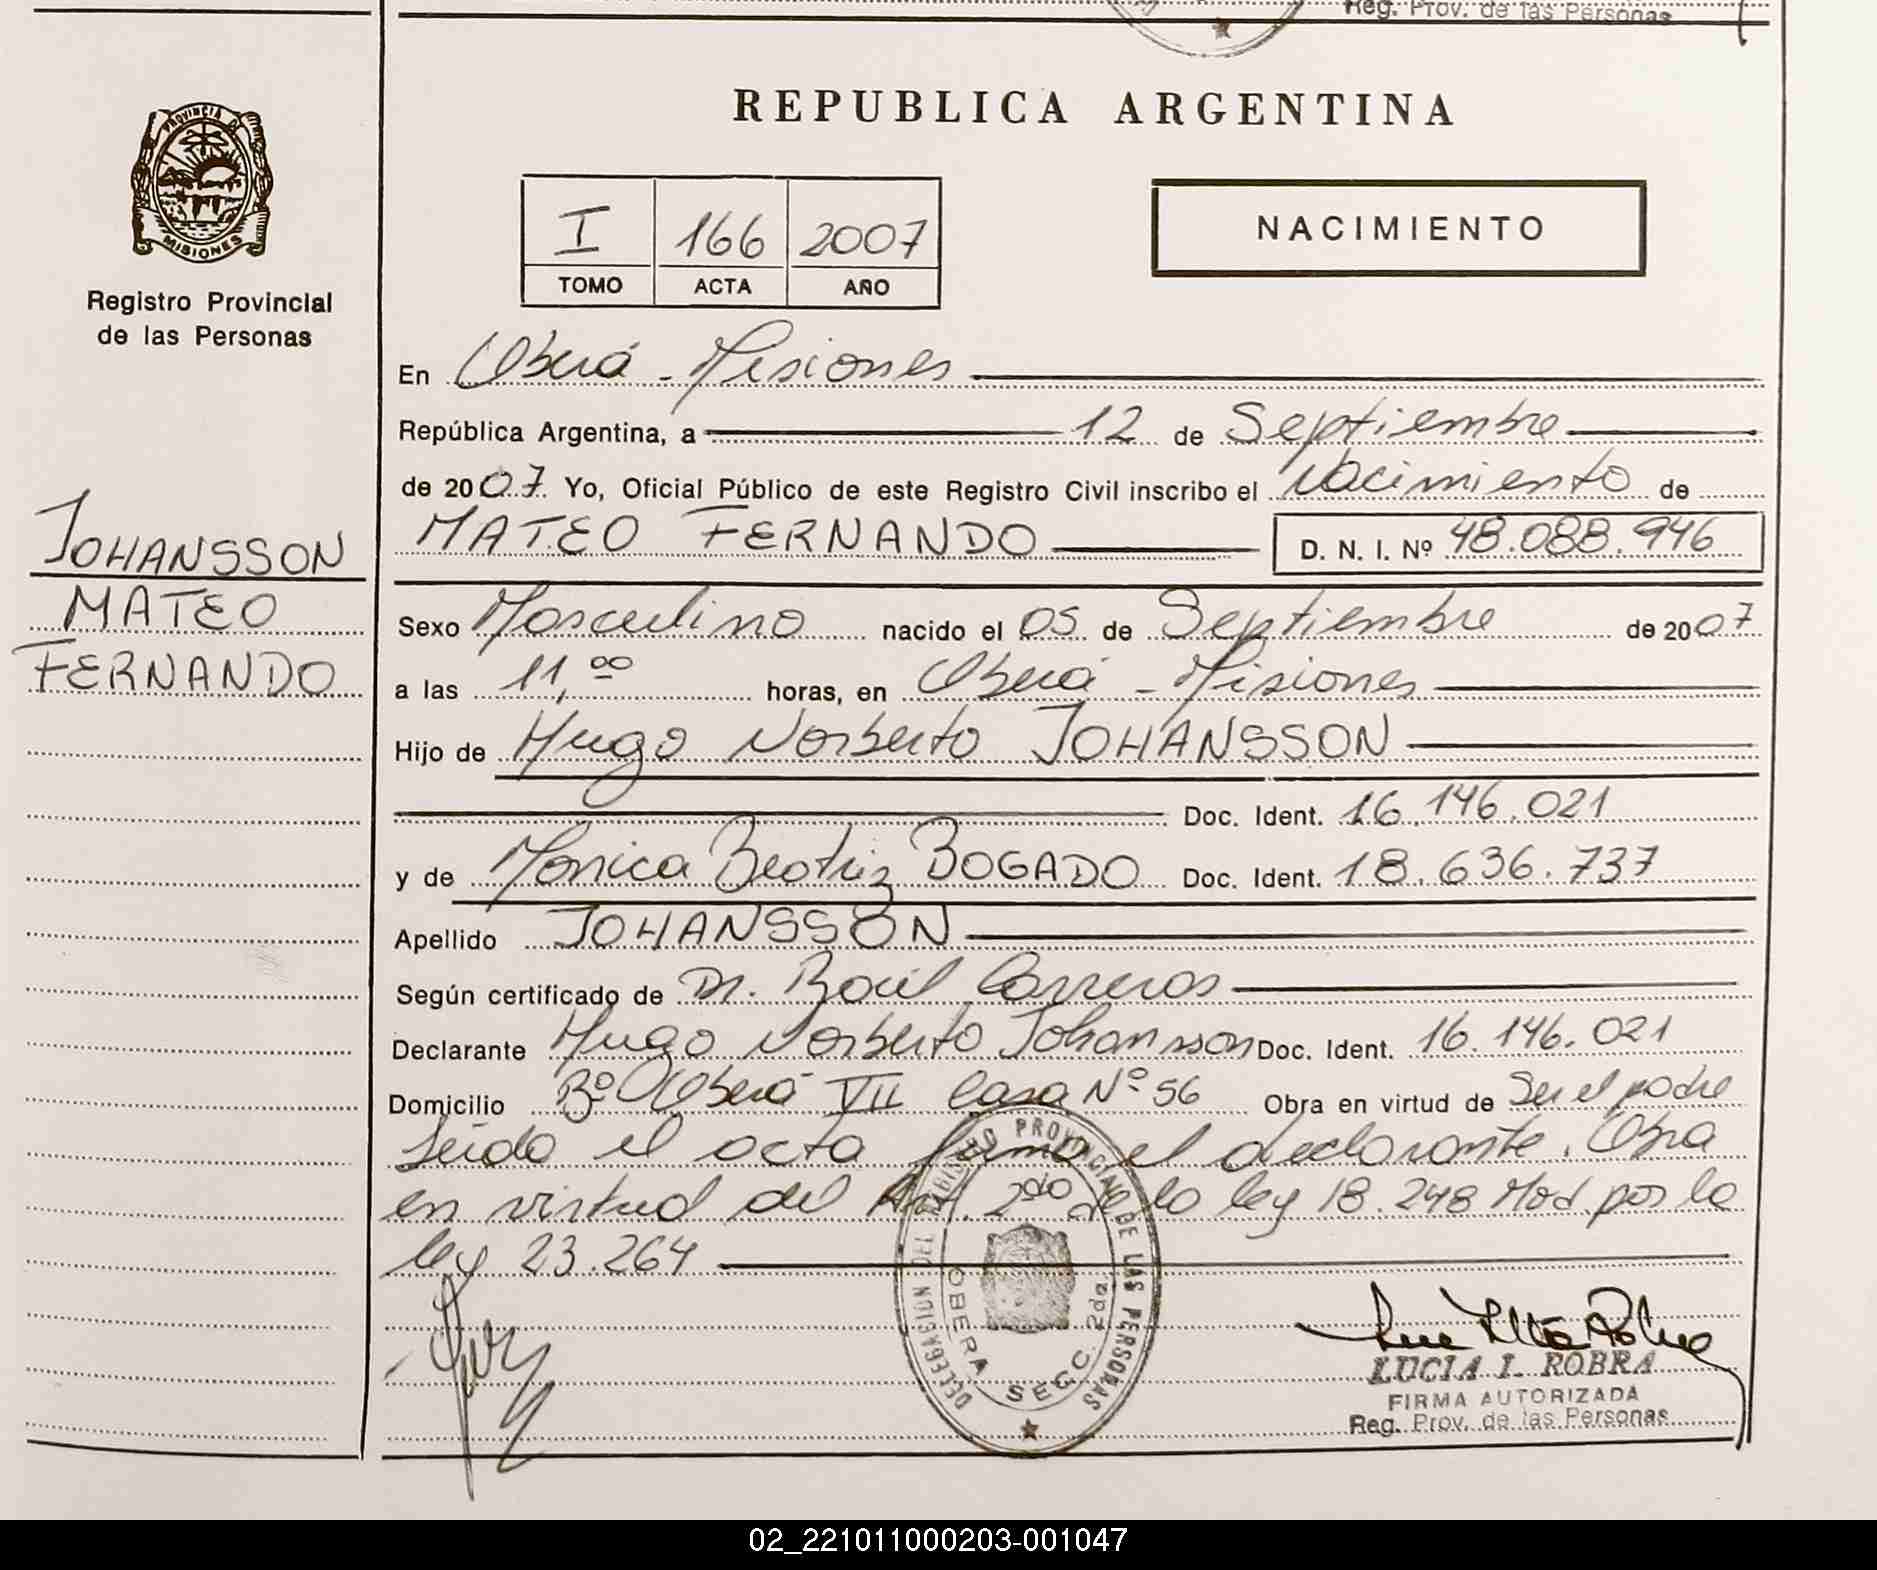 Reg. Prov. de las Personas
REPUBLICA ARGENTINA
PROVINCIA DE
MISIONES
Registro Provincial
de las Personas
I 166 2007
TOMO ACTA AÑO
NACIMIENTO
JOHANSSON
MATEO
FERNANDO
En Oberá - Misiones
República Argentina, a 12 de Septiembre
de 2007. Yo, Oficial Público de este Registro Civil inscribo el Nacimiento de
MATEO FERNANDO D. N. I. Nº 48.088.946
Sexo Masculino nacido el 05 de Septiembre de 2007
a las 11,00 horas, en Oberá - Misiones
Hijo de Hugo Norberto JOHANSSON
Doc. Ident. 16.146.021
y de Monica Beatriz BOGADO Doc. Ident. 18.636.737
Apellido JOHANSSON
Según certificado de Dr. Raúl Carreros
Declarante Hugo Norberto Johansson Doc. Ident. 16.146.021
Domicilio Bº Oberá VII Casa Nº 56 Obra en virtud de Ser el padre
Leída el acta firma el declarante. Obra
en virtud del Art. 2do de la ley 18.248 Mod. por la
ley 23.264
DELEGACION DEL REGISTRO PROVINCIAL DE LAS PERSONAS
OBERA SECC. 2da
LUCIA I. ROBRA
FIRMA AUTORIZADA
Reg. Prov. de las Personas
02_221011000203-001047